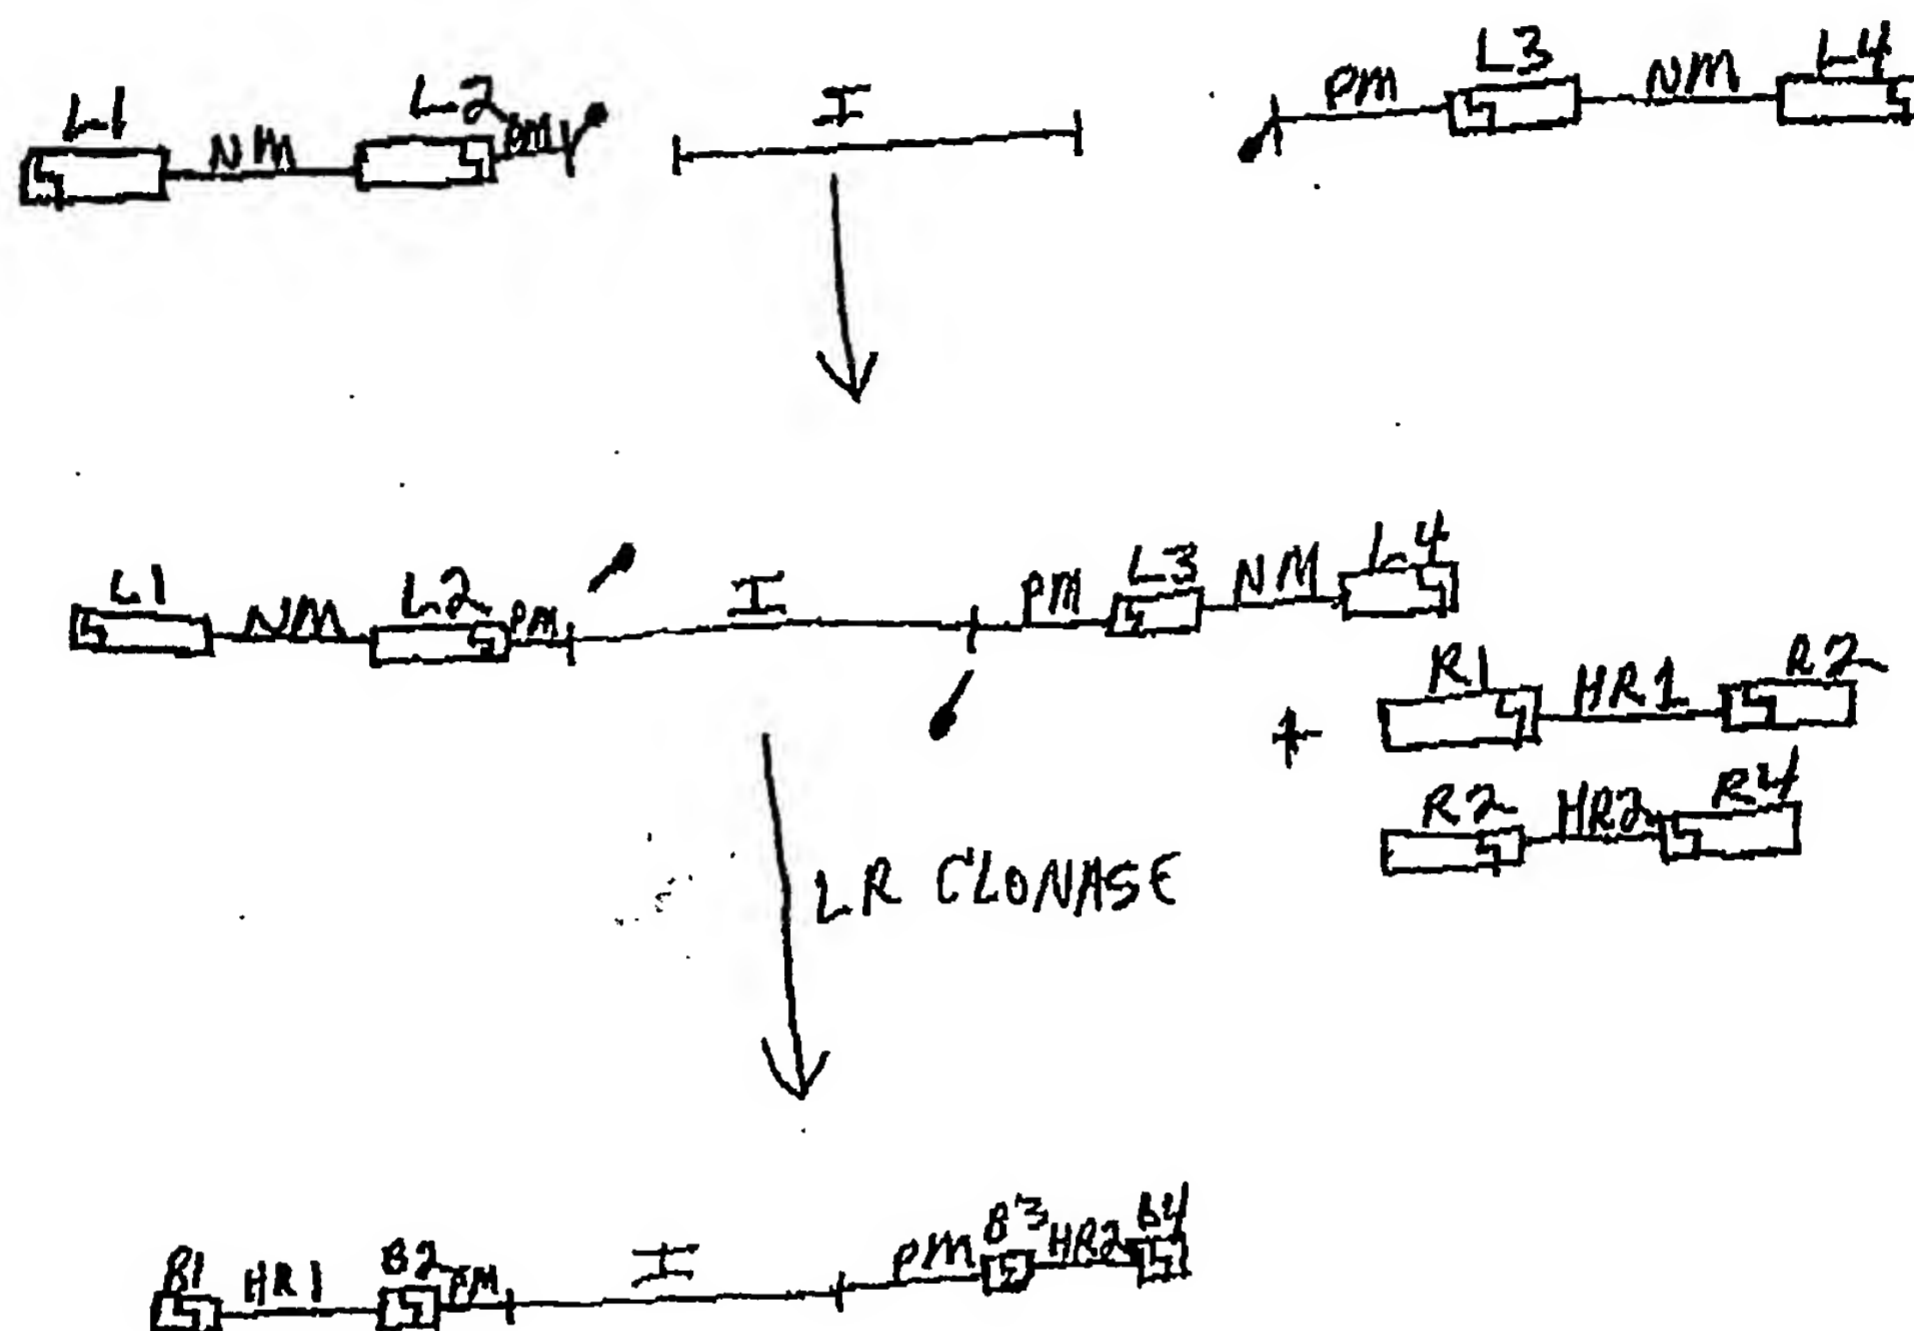 L1 NM L2 PM I PM L3 NM L4
L1 NM L2 PM I PM L3 NM L4
R1 HR1 R2
+
R2 HR2 R4
LR CLONASE
B1 HR1 B2 PM I PM B3 HR2 B4